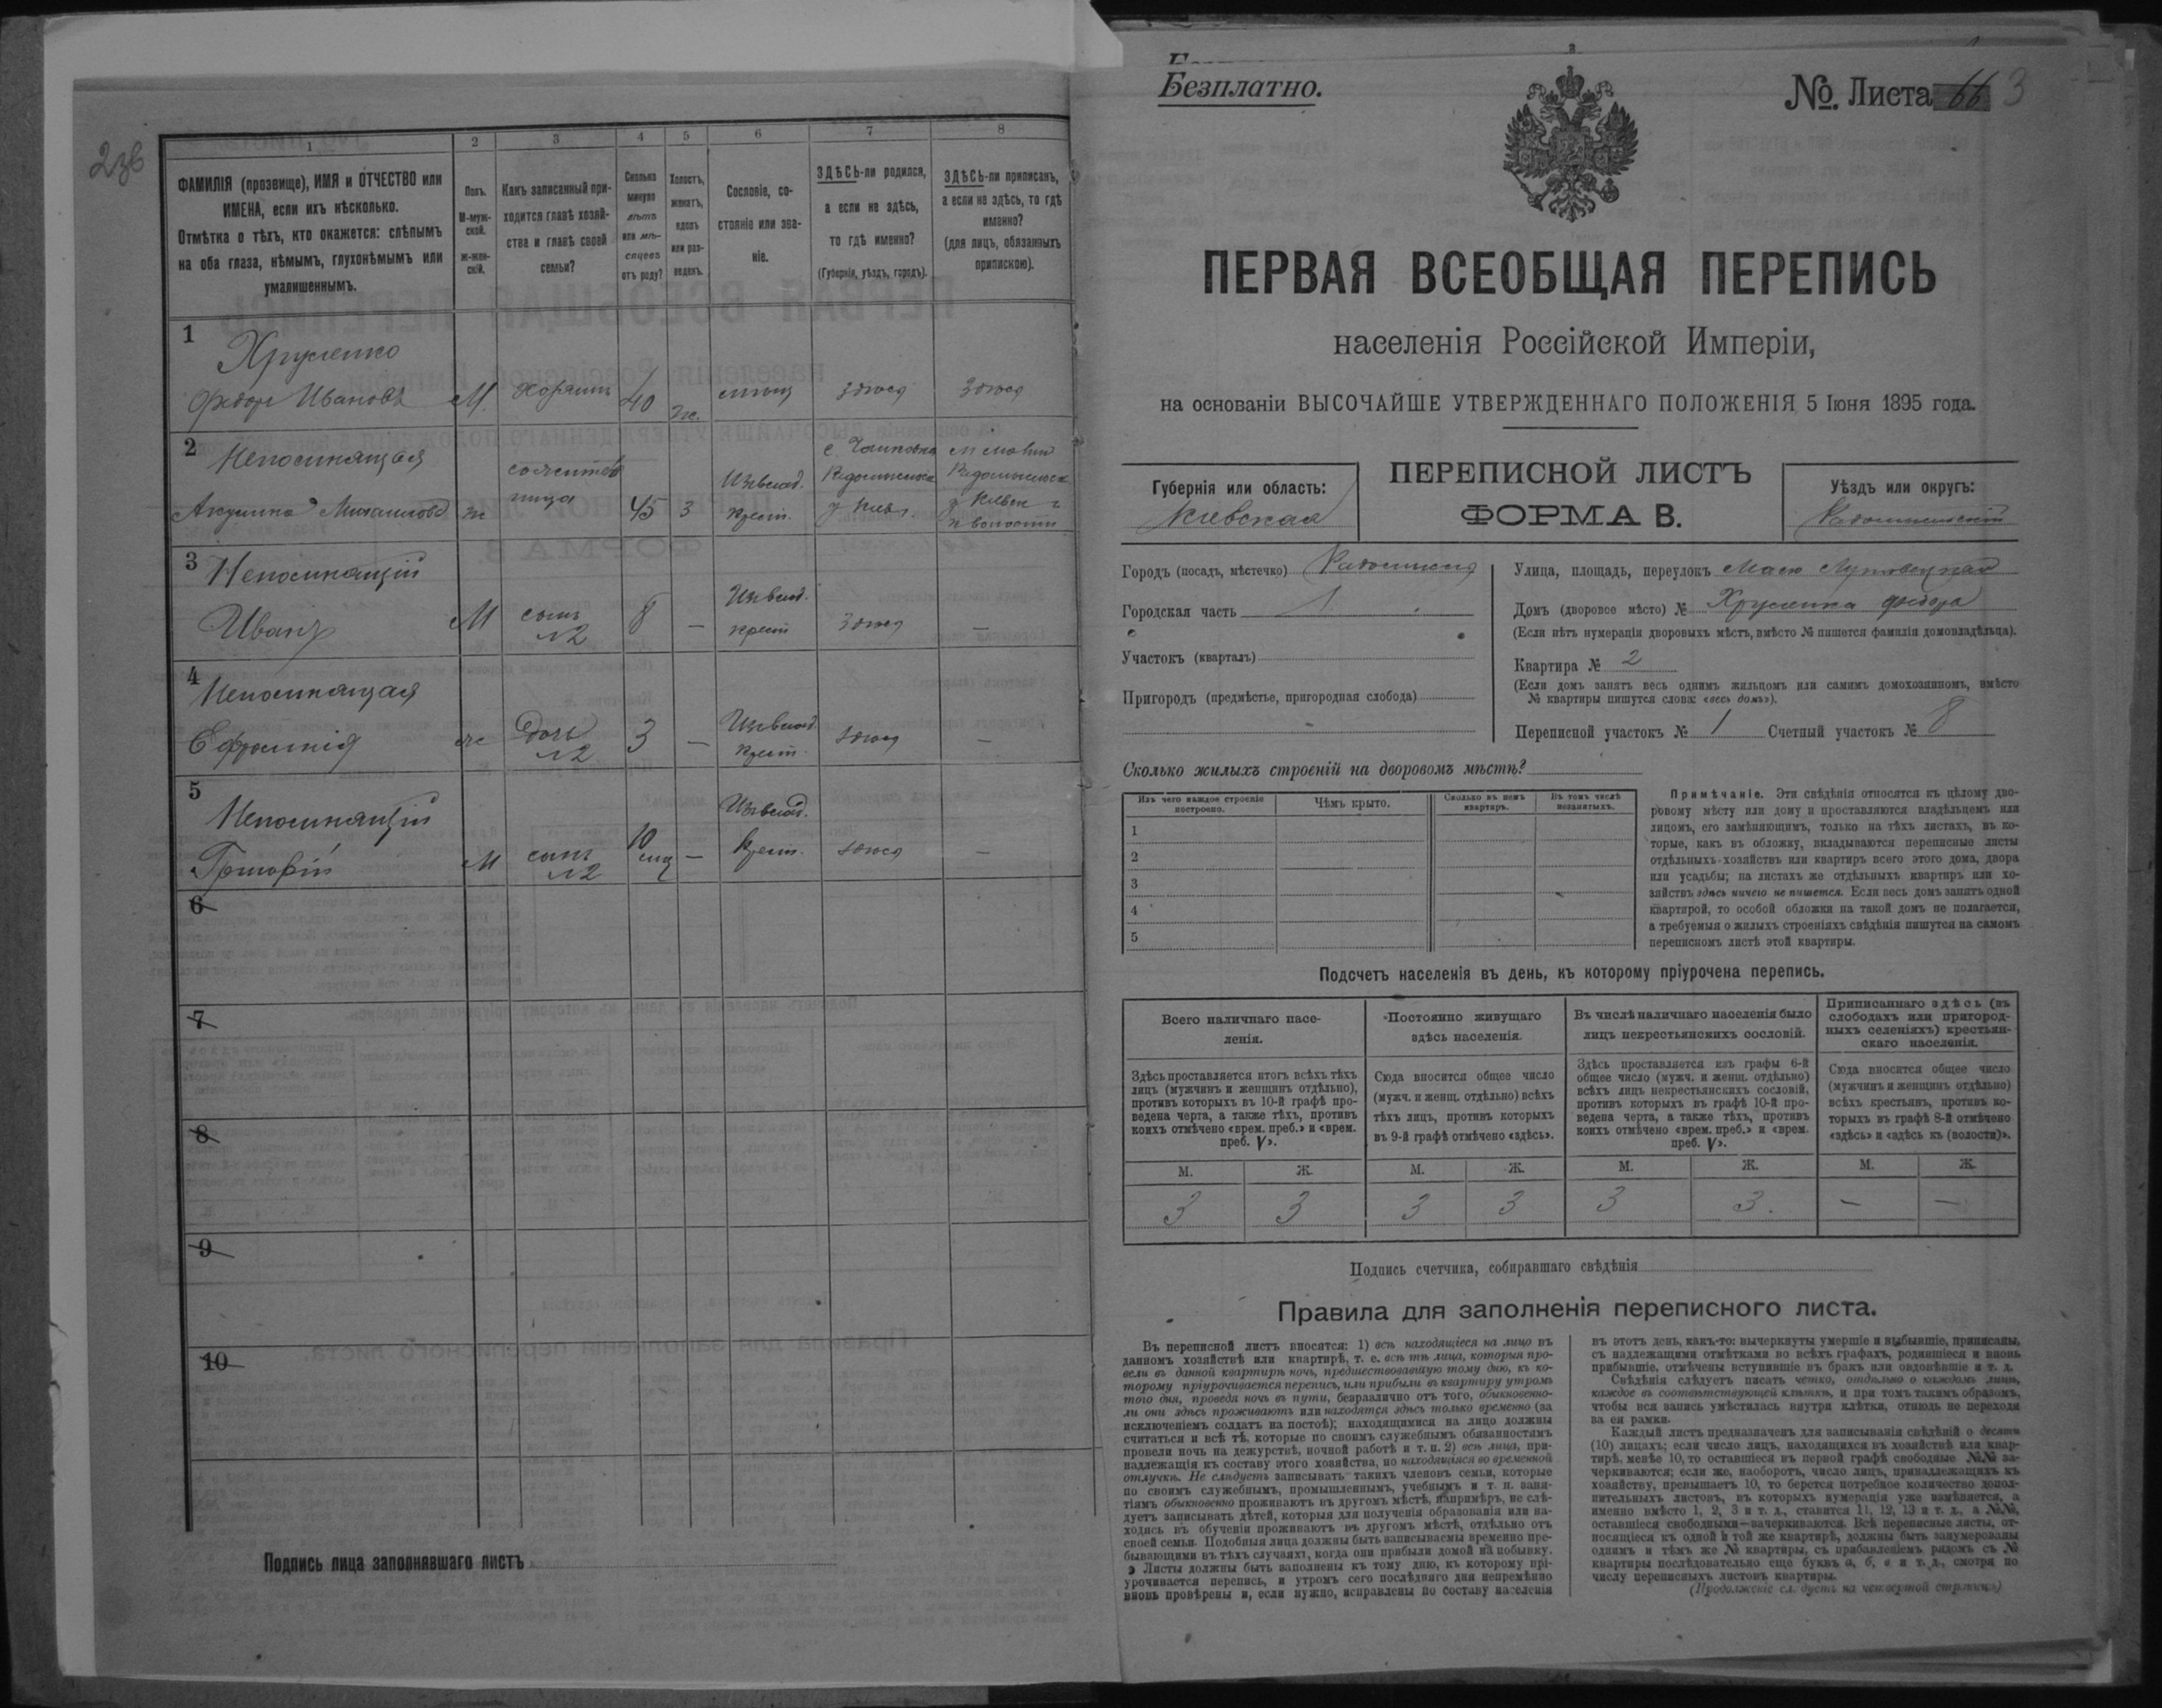 236
1
2
3
4
5
6
7
8
ФАМИЛІЯ (прозвище), ИМЯ и ОТЧЕСТВО или
ИМЕНА, если ихъ нѣсколько.
Отмѣтка о тѣхъ, кто окажется: слѣпымъ
на оба глаза, нѣмымъ, глухонѣмымъ или
умалишеннымъ.
Полъ.
М-муж-
ской.
Ж-жен-
скій.
Какъ записанный при-
ходится главѣ хозяй-
ства и главѣ своей
семьи?
Сколько
минуло
лѣтъ
или мѣ-
сяцевъ
отъ роду?
Холостъ,
женатъ,
вдовъ
или раз-
веденъ.
Сословіе, со-
стояніе или зва-
ніе.
ЗДѢСЬ-ли родился,
а если не здѣсь,
то гдѣ именно?
(Губернія, уѣздъ, городъ).
ЗДѢСЬ-ли приписанъ,
а если не здѣсь, то гдѣ
именно?
(для лицъ, обязанныхъ
припискою).
1
Федоръ Ивановъ М. 40 ж. здѣсь здѣсь
2
ж 45 3 крест.
3
Иванъ М сынъ №2 8 — крест здѣсь —
4
ж дочь №2 3 — крест. здѣсь —
5
Григорій М сынъ №2 10 мѣс — крест. здѣсь —
6
7
8
9
10
Подпись лица заполнявшаго листъ
Безплатно.
№ Листа 66 3
ПЕРВАЯ ВСЕОБЩАЯ ПЕРЕПИСЬ
населенія Россійской Имперіи,
на основаніи ВЫСОЧАЙШЕ УТВЕРЖДЕННАГО ПОЛОЖЕНІЯ 5 Іюня 1895 года.
Губернія или область:
Кіевская
ПЕРЕПИСНОЙ ЛИСТЪ
ФОРМА В.
Уѣздъ или округъ:
Радомысльскій
Городъ (посадъ, мѣстечко) Радомысль
Городская часть 1
Участокъ (кварталъ)
Пригородъ (предмѣстье, пригородная слобода)
Улица, площадь, переулокъ
Домъ (дворовое мѣсто) № Федора
(Если нѣтъ нумераціи дворовыхъ мѣстъ, вмѣсто № пишется фамилія домовладѣльца).
Квартира № 2
(Если домъ занятъ весь однимъ жильцомъ или самимъ домохозяиномъ, вмѣсто
№ квартиры пишутся слова: «весь домъ»).
Переписной участокъ № 1 Счетный участокъ № 8
Сколько жилыхъ строеній на дворовомъ мѣстѣ?
Изъ чего каждое строеніе
построено.
Чѣмъ крыто.
Сколько въ немъ
квартиръ.
Въ томъ числѣ
незанятыхъ.
1
2
3
4
5
Примѣчаніе. Эти свѣдѣнія относятся къ цѣлому дво-
ровому мѣсту или дому и проставляются владѣльцемъ или
лицомъ, его замѣняющимъ, только на тѣхъ листахъ, въ ко-
торые, какъ въ обложку, вкладываются переписные листы
отдѣльныхъ хозяйствъ или квартиръ всего этого дома, двора
или усадьбы; на листахъ же отдѣльныхъ квартиръ или хо-
зяйствъ здѣсь ничего не пишется. Если весь домъ занятъ одной
квартирой, то особой обложки на такой домъ не полагается,
а требуемыя о жилыхъ строеніяхъ свѣдѣнія пишутся на самомъ
переписномъ листѣ этой квартиры.
Подсчетъ населенія въ день, къ которому пріурочена перепись.
Всего наличнаго насе-
ленія.
Здѣсь проставляется итогъ всѣхъ тѣхъ
лицъ (мужчинъ и женщинъ отдѣльно),
противъ которыхъ въ 10-й графѣ про-
ведена черта, а также тѣхъ, противъ
коихъ отмѣчено «врем. преб.» и «врем.
преб. V».
Постоянно живущаго
здѣсь населенія.
Сюда вносится общее число
(мужч. и женщ. отдѣльно) всѣхъ
тѣхъ лицъ, противъ которыхъ
въ 9-й графѣ отмѣчено «здѣсь».
Въ числѣ наличнаго населенія было
лицъ некрестьянскихъ сословій.
Здѣсь проставляется изъ графы 6-й
общее число (мужч. и женщ. отдѣльно)
всѣхъ лицъ некрестьянскихъ сословій,
противъ которыхъ въ графѣ 10-й про-
ведена черта, а также тѣхъ, противъ
коихъ отмѣчено «врем. преб.» и «врем.
преб. V».
Приписаннаго здѣсь (въ
слободахъ или пригород-
ныхъ селеніяхъ) крестьян-
скаго населенія.
Сюда вносится общее число
(мужчинъ и женщинъ отдѣльно)
всѣхъ крестьянъ, противъ ко-
торыхъ въ графѣ 8-й отмѣчено
«здѣсь» и «здѣсь къ (волости)».
М. Ж. М. Ж. М. Ж. М. Ж.
3 3 3 3 3 3. — —
Подпись счетчика, собиравшаго свѣдѣнія
Правила для заполненія переписного листа.
Въ переписной листъ вносятся: 1) всѣ находящіеся на лицо въ
данномъ хозяйствѣ или квартирѣ, т. е. всѣ тѣ лица, которыя про-
вели въ данной квартирѣ ночь, предшествовавшую тому дню, къ ко-
торому пріурочивается перепись, или прибыли въ квартиру утромъ
того дня, проведя ночь въ пути, безразлично отъ того, обыкновенно-
ли они здѣсь проживаютъ или находятся здѣсь только временно (за
исключеніемъ солдатъ на постоѣ); находящимися на лицо должны
считаться и всѣ тѣ, которые по своимъ служебнымъ обязанностямъ
провели ночь на дежурствѣ, ночной работѣ и т. п. 2) всѣ лица, при-
надлежащія къ составу этого хозяйства, но находящіяся во временной
отлучкѣ. Не слѣдуетъ записывать такихъ членовъ семьи, которые
по своимъ служебнымъ, промышленнымъ, учебнымъ и т. п. заня-
тіямъ обыкновенно проживаютъ въ другомъ мѣстѣ, напримѣръ, не слѣ-
дуетъ записывать дѣтей, которыя для полученія образованія или на-
ходясь въ обученіи проживаютъ въ другомъ мѣстѣ, отдѣльно отъ
своей семьи. Подобныя лица должны быть записываемы временно пре-
бывающими въ тѣхъ случаяхъ, когда они прибыли домой на побывку.
Листы должны быть заполнены къ тому дню, къ которому прі-
урочивается перепись, и утромъ сего послѣдняго дня непремѣнно
вновь провѣрены и, если нужно, исправлены по составу населенія
въ этотъ день, какъ-то: вычеркнуты умершіе и выбывшіе, приписаны,
съ надлежащими отмѣтками во всѣхъ графахъ, родившіеся и вновь
прибывшіе, отмѣчены вступившіе въ бракъ или овдовѣвшіе и т. д.
Свѣдѣнія слѣдуетъ писать четко, отдѣльно о каждомъ лицѣ,
каждое въ соотвѣтствующей клѣткѣ, и при томъ такимъ образомъ,
чтобы вся запись умѣстилась внутри клѣтки, отнюдь не переходя
за ея рамки.
Каждый листъ предназначенъ для записыванія свѣдѣній о десяти
(10) лицахъ; если число лицъ, находящихся въ хозяйствѣ или квар-
тирѣ, менѣе 10, то оставшіеся въ первой графѣ свободные №№ за-
черкиваются; если же, наоборотъ, число лицъ, принадлежащихъ къ
хозяйству, превышаетъ 10, то берется потребное количество допол-
нительныхъ листовъ, въ которыхъ нумерація уже измѣняется, а
именно вмѣсто 1, 2, 3 и т. д., ставится 11, 12, 13 и т. д., а №№,
оставшіеся свободными—зачеркиваются. Всѣ переписные листы, от-
носящіеся къ одной и той же квартирѣ, должны быть занумерованы
однимъ и тѣмъ же № квартиры, съ прибавленіемъ рядомъ съ №
квартиры послѣдовательно еще буквъ а, б, в и т. д., смотря по
числу переписныхъ листовъ квартиры.
(Продолженіе слѣдуетъ на четвертой страницѣ)